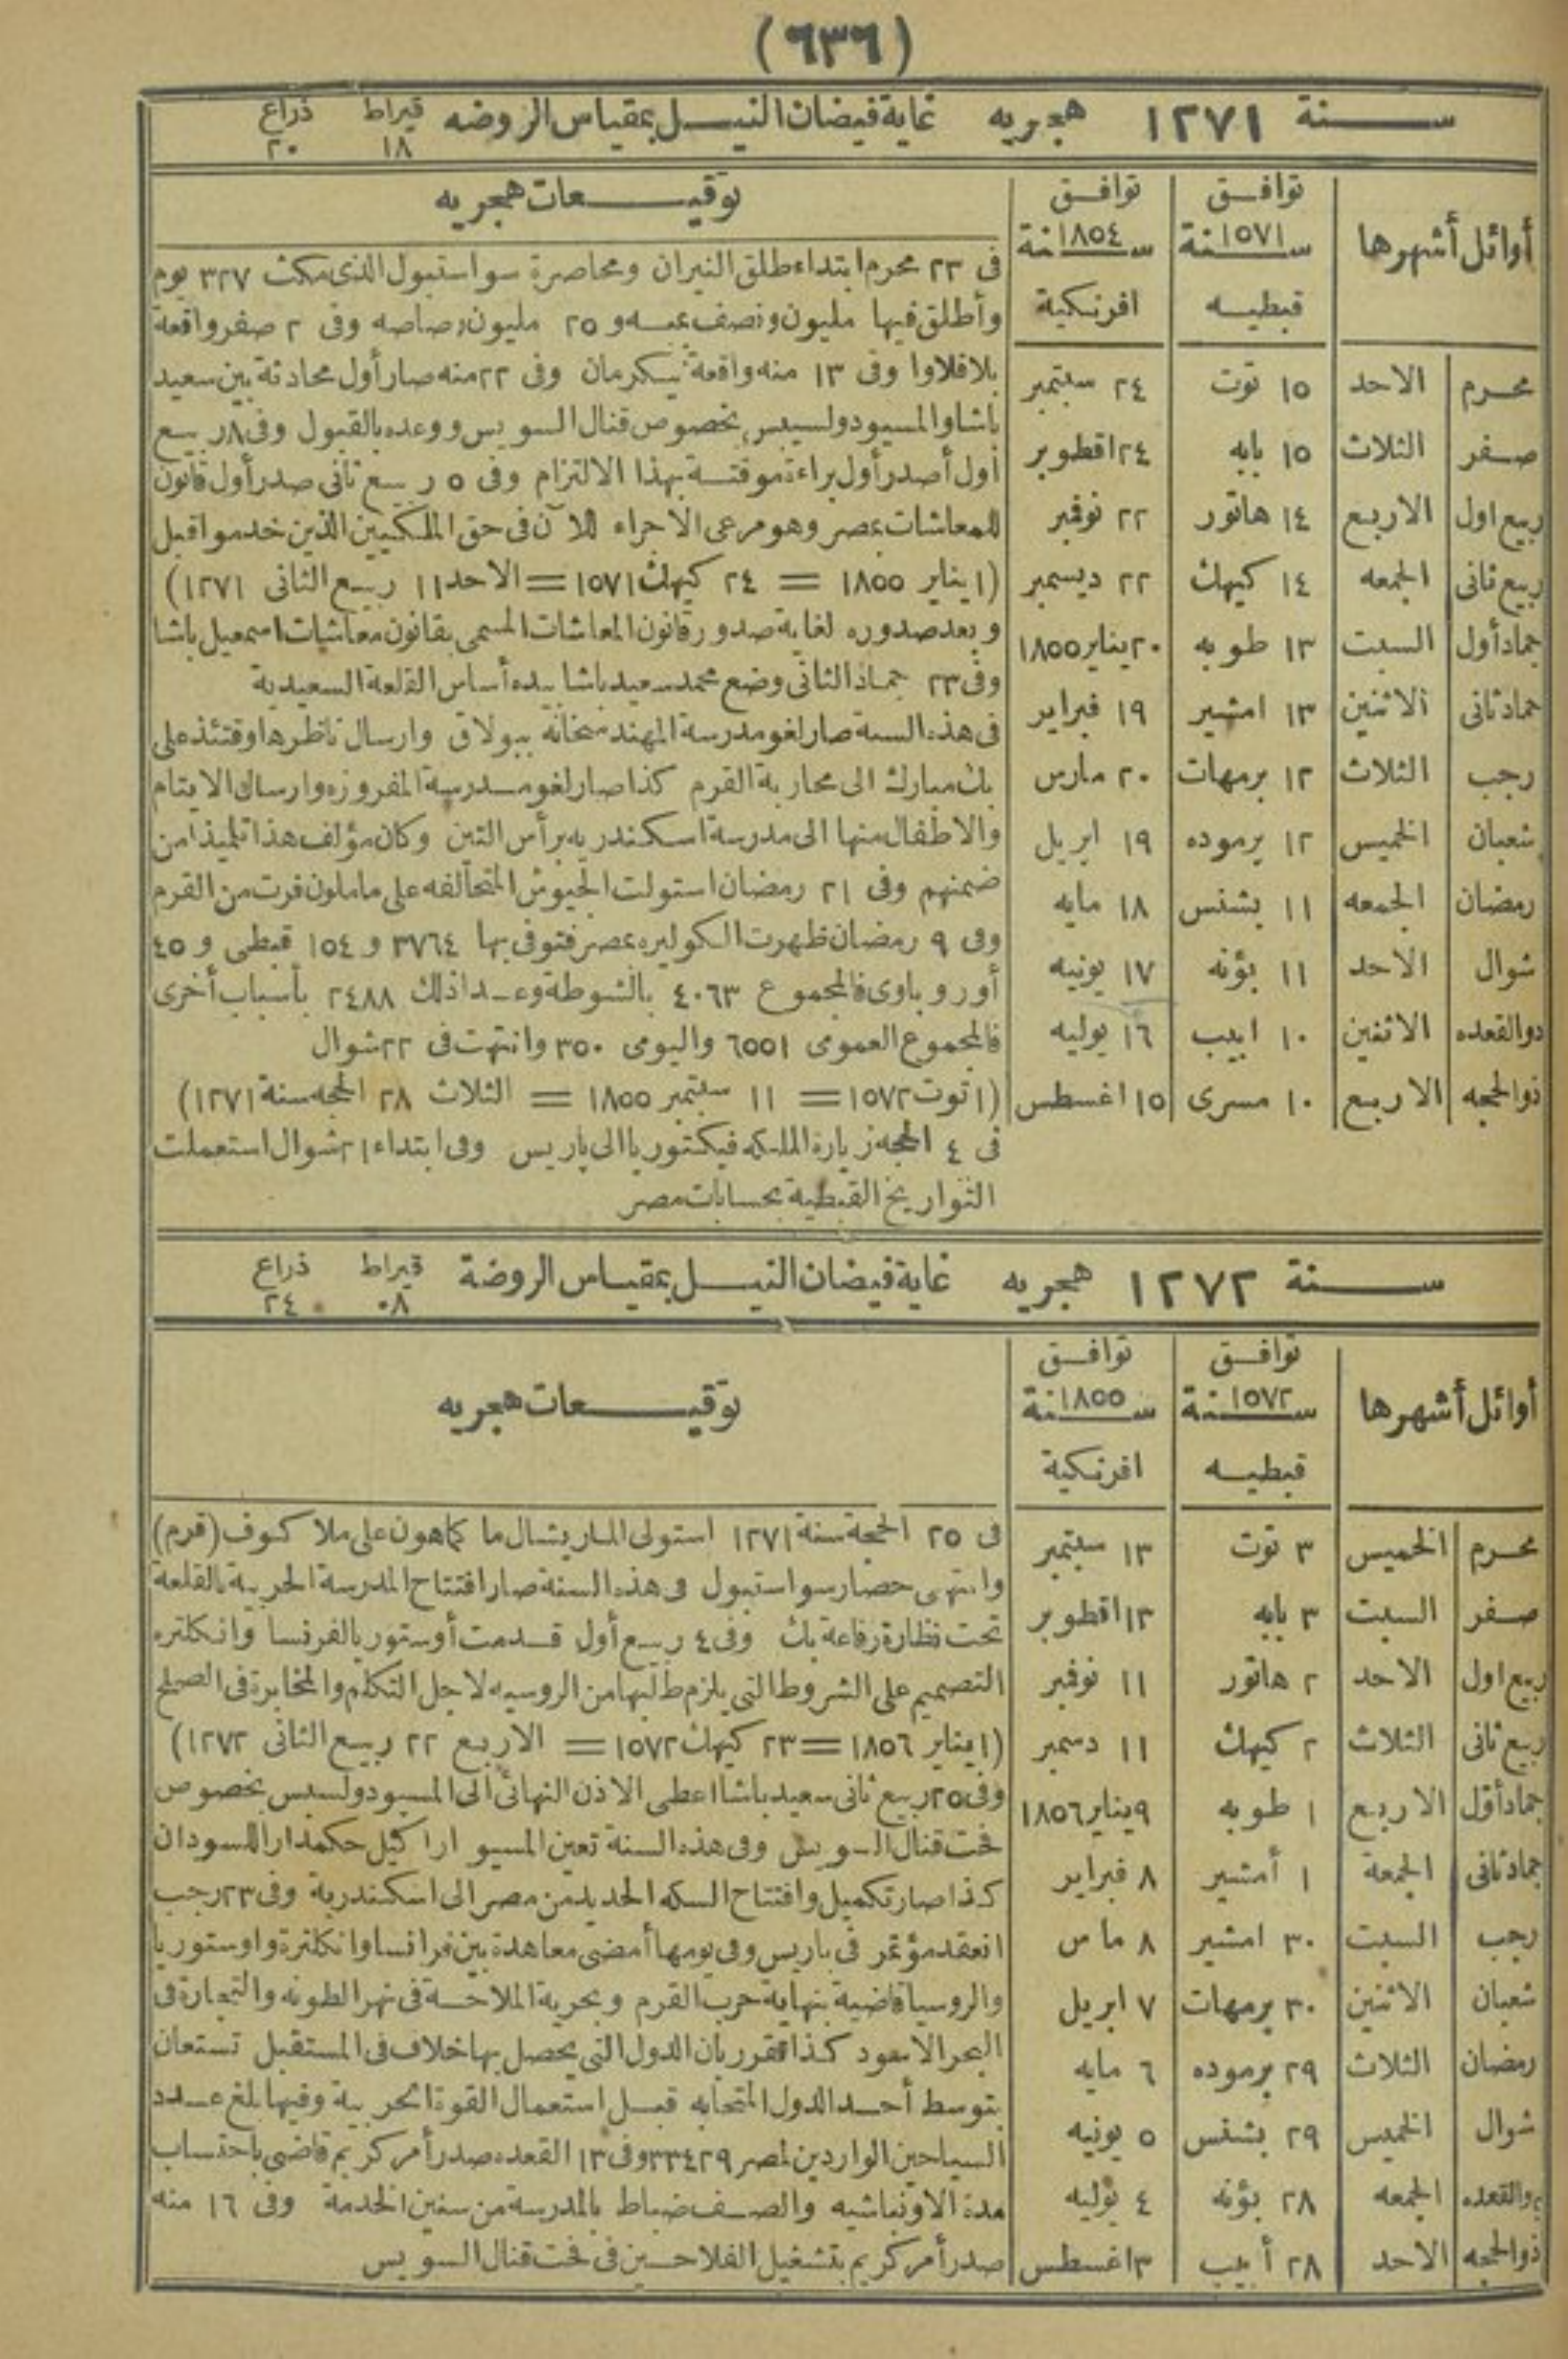 (٦٣٦)
سنة ١٢٧١ هجريه غاية فيضان النيل بمقياس الروضه قيراط ١٨ ذراع ٢٠
أوائل أشهرها
توافق سنة ١٥٧١ قبطيه
توافق سنة ١٨٥٤ افرنكية
توقيعات هجريه
محرم الاحد ١٥ توت ٢٤ سبتمبر
صفر الثلاث ١٥ بابه ٢٤ اقطوبر
ربيع اول الاربع ١٤ هاتور ٢٢ نوفمبر
ربيع ثانى الجمعه ١٤ كيهك ٢٢ ديسمبر
جماد أول السبت ١٣ طوبه ٢٠ يناير ١٨٥٥
جماد ثانى الاثنين ١٣ امشير ١٩ فبراير
رجب الثلاث ١٢ برمهات ٢٠ مارس
شعبان الخميس ١٢ برموده ١٩ ابريل
رمضان الجمعه ١١ بشنس ١٨ مايه
شوال الاحد ١١ بؤنه ١٧ يونيه
ذوالقعده الاثنين ١٠ ابيب ١٦ يوليه
ذوالحجه الاربع ١٠ مسرى ١٥ اغسطس
فى ٢٣ محرم ابتداء طلق النيران ومحاصرة سواستبول الذى مكث ٣٢٧ يوم
وأطلق فيها مليون ونصف بمبه و ٢٥ مليون رصاصه وفى ٢ صفر واقعة
بلاقلاوا وفى ١٣ منه واقعة ينكرمان وفى ٢٢ منه صار أول محادثة بين سعيد
باشا والمسيو دولسيبس بخصوص قنال السويس ووعده بالقبول وفى ٨ ربيع
أول أصدر أول براءة موقتة بهذا الالتزام وفى ٥ ربيع ثانى صدر أول قانون
للمعاشات بمصر وهو مرعى الاجراء للآن فى حق الملكيين الذين خدموا قبل
(١ يناير ١٨٥٥ = ٢٤ كيهك ١٥٧١ = الاحد ١١ ربيع الثانى ١٢٧١)
وبعد صدوره لغاية صدور قانون المعاشات المسمى بقانون معاشات اسمعيل باشا
وفى ٢٣ جماد الثانى وضع محمد سعيد باشا بيده أساس القلعة السعيدية
فى هذه السنة صار لغو مدرسة المهندسخانة ببولاق وارسال ناظرها وقتئذ على
بك مبارك الى محاربة القرم كذا صار لغو مدرسة المفروزه وارسال الايتام
والاطفال منها الى مدرسة اسكندريه برأس التين وكان مؤلف هذا تلميذا من
ضمنهم وفى ٢١ رمضان استولت الجيوش المتحالفه على ماملون فرت من القرم
وفى ٩ رمضان ظهرت الكوليره بمصر فتوفى بها ٣٧٦٤ و ١٥٤ قبطى و ٤٥
أوروباوى فالمجموع ٤٠٦٣ بالشوطة وعدا ذلك ٢٤٨٨ بأسباب أخرى
فالمجموع العمومى ٦٥٥١ واليومى ٣٥٠ وانتهت فى ٢٢ شوال
(١ توت ١٥٧٢ = ١١ سبتمبر ١٨٥٥ = الثلاث ٢٨ الحجه سنة ١٢٧١)
فى ٤ الحجه زيارة الملكه فيكتوريا الى باريس وفى ابتداء ٢١ شوال استعملت
التواريخ القبطية بحسابات مصر
سنة ١٢٧٢ هجريه غاية فيضان النيل بمقياس الروضة قيراط ٠٨ ذراع ٢٤
أوائل أشهرها
توافق سنة ١٥٧٢ قبطيه
توافق سنة ١٨٥٥ افرنكية
توقيعات هجريه
محرم الخميس ٣ توت ١٣ سبتمبر
صفر السبت ٣ بابه ١٣ اقطوبر
ربيع اول الاحد ٢ هاتور ١١ نوفمبر
ربيع ثانى الثلاث ٢ كيهك ١١ دسمبر
جماد أول الاربع ١ طوبه ٩ يناير ١٨٥٦
جماد ثانى الجمعة ١ أمشير ٨ فبراير
رجب السبت ٣٠ امشير ٨ مارس
شعبان الاثنين ٣٠ برمهات ٧ ابريل
رمضان الثلاث ٢٩ برموده ٦ مايه
شوال الخميس ٢٩ بشنس ٥ يونيه
ذوالقعده الجمعه ٢٨ بؤنه ٤ يوليه
ذوالحجه الاحد ٢٨ أبيب ٣ اغسطس
فى ٢٥ الحجة سنة ١٢٧١ استولى الماريشال ما كماهون على ملا كوف (قرم)
وانتهى حصار سواستبول فى هذه السنة صار افتتاح المدرسة الحربية بالقلعة
تحت نظارة رفاعة بك وفى ٤ ربيع أول قدمت أوستوريا لفرنسا وانكلتره
التصميم على الشروط التى يلزم طلبها من الروسيه لاجل التكلم والمخابرة فى الصلح
(١ يناير ١٨٥٦ = ٢٣ كيهك ١٥٧٢ = الاربع ٢٢ ربيع الثانى ١٢٧٢)
وفى ٢٥ ربيع ثانى سعيد باشا اعطى الاذن النهائى الى المسيو دولسبس بخصوص
فحت قنال السويس وفى هذه السنة تعين المسيو اراكيل حكمدارا للسودان
كذا صار تكميل وافتتاح السكه الحديد من مصر الى اسكندرية وفى ٢٣ رجب
انعقد مؤتمر فى باريس وفى يومها أمضى معاهدة بين فرانسا وانكلترة واوستوريا
والروسيا قاضية بنهاية حرب القرم وبحرية الملاحة فى نهر الطونه والتجارة فى
البحر الاسود كذا تقرر بان الدول التى يحصل بها خلاف فى المستقبل تستعان
بتوسط أحد الدول المتحابه قبل استعمال القوة الحربية وفيها بلغ عدد
السياحين الواردين لمصر ٣٣٤٢٩ وفى ١٣ القعده صدر أمر كريم قاضى باحتساب
مدة الاونباشيه والصف ضباط بالمدرسة من سنين الخدمة وفى ١٦ منه
صدر أمر كريم بتشغيل الفلاحين فى فحت قنال السويس